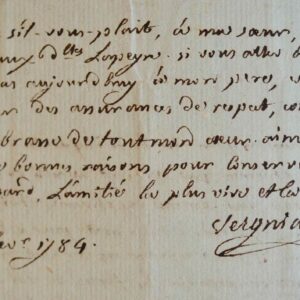 s'il-vous-plait, à ma sœur,
aux d.lles Lapeyre. si vous allés
aujourd'huy à mon pere,
des assurances de respet,
brasse de tout mon cœur.
bonnes raisons pour conserver
L'amitié la plus vive et la
Sergnia
1784.